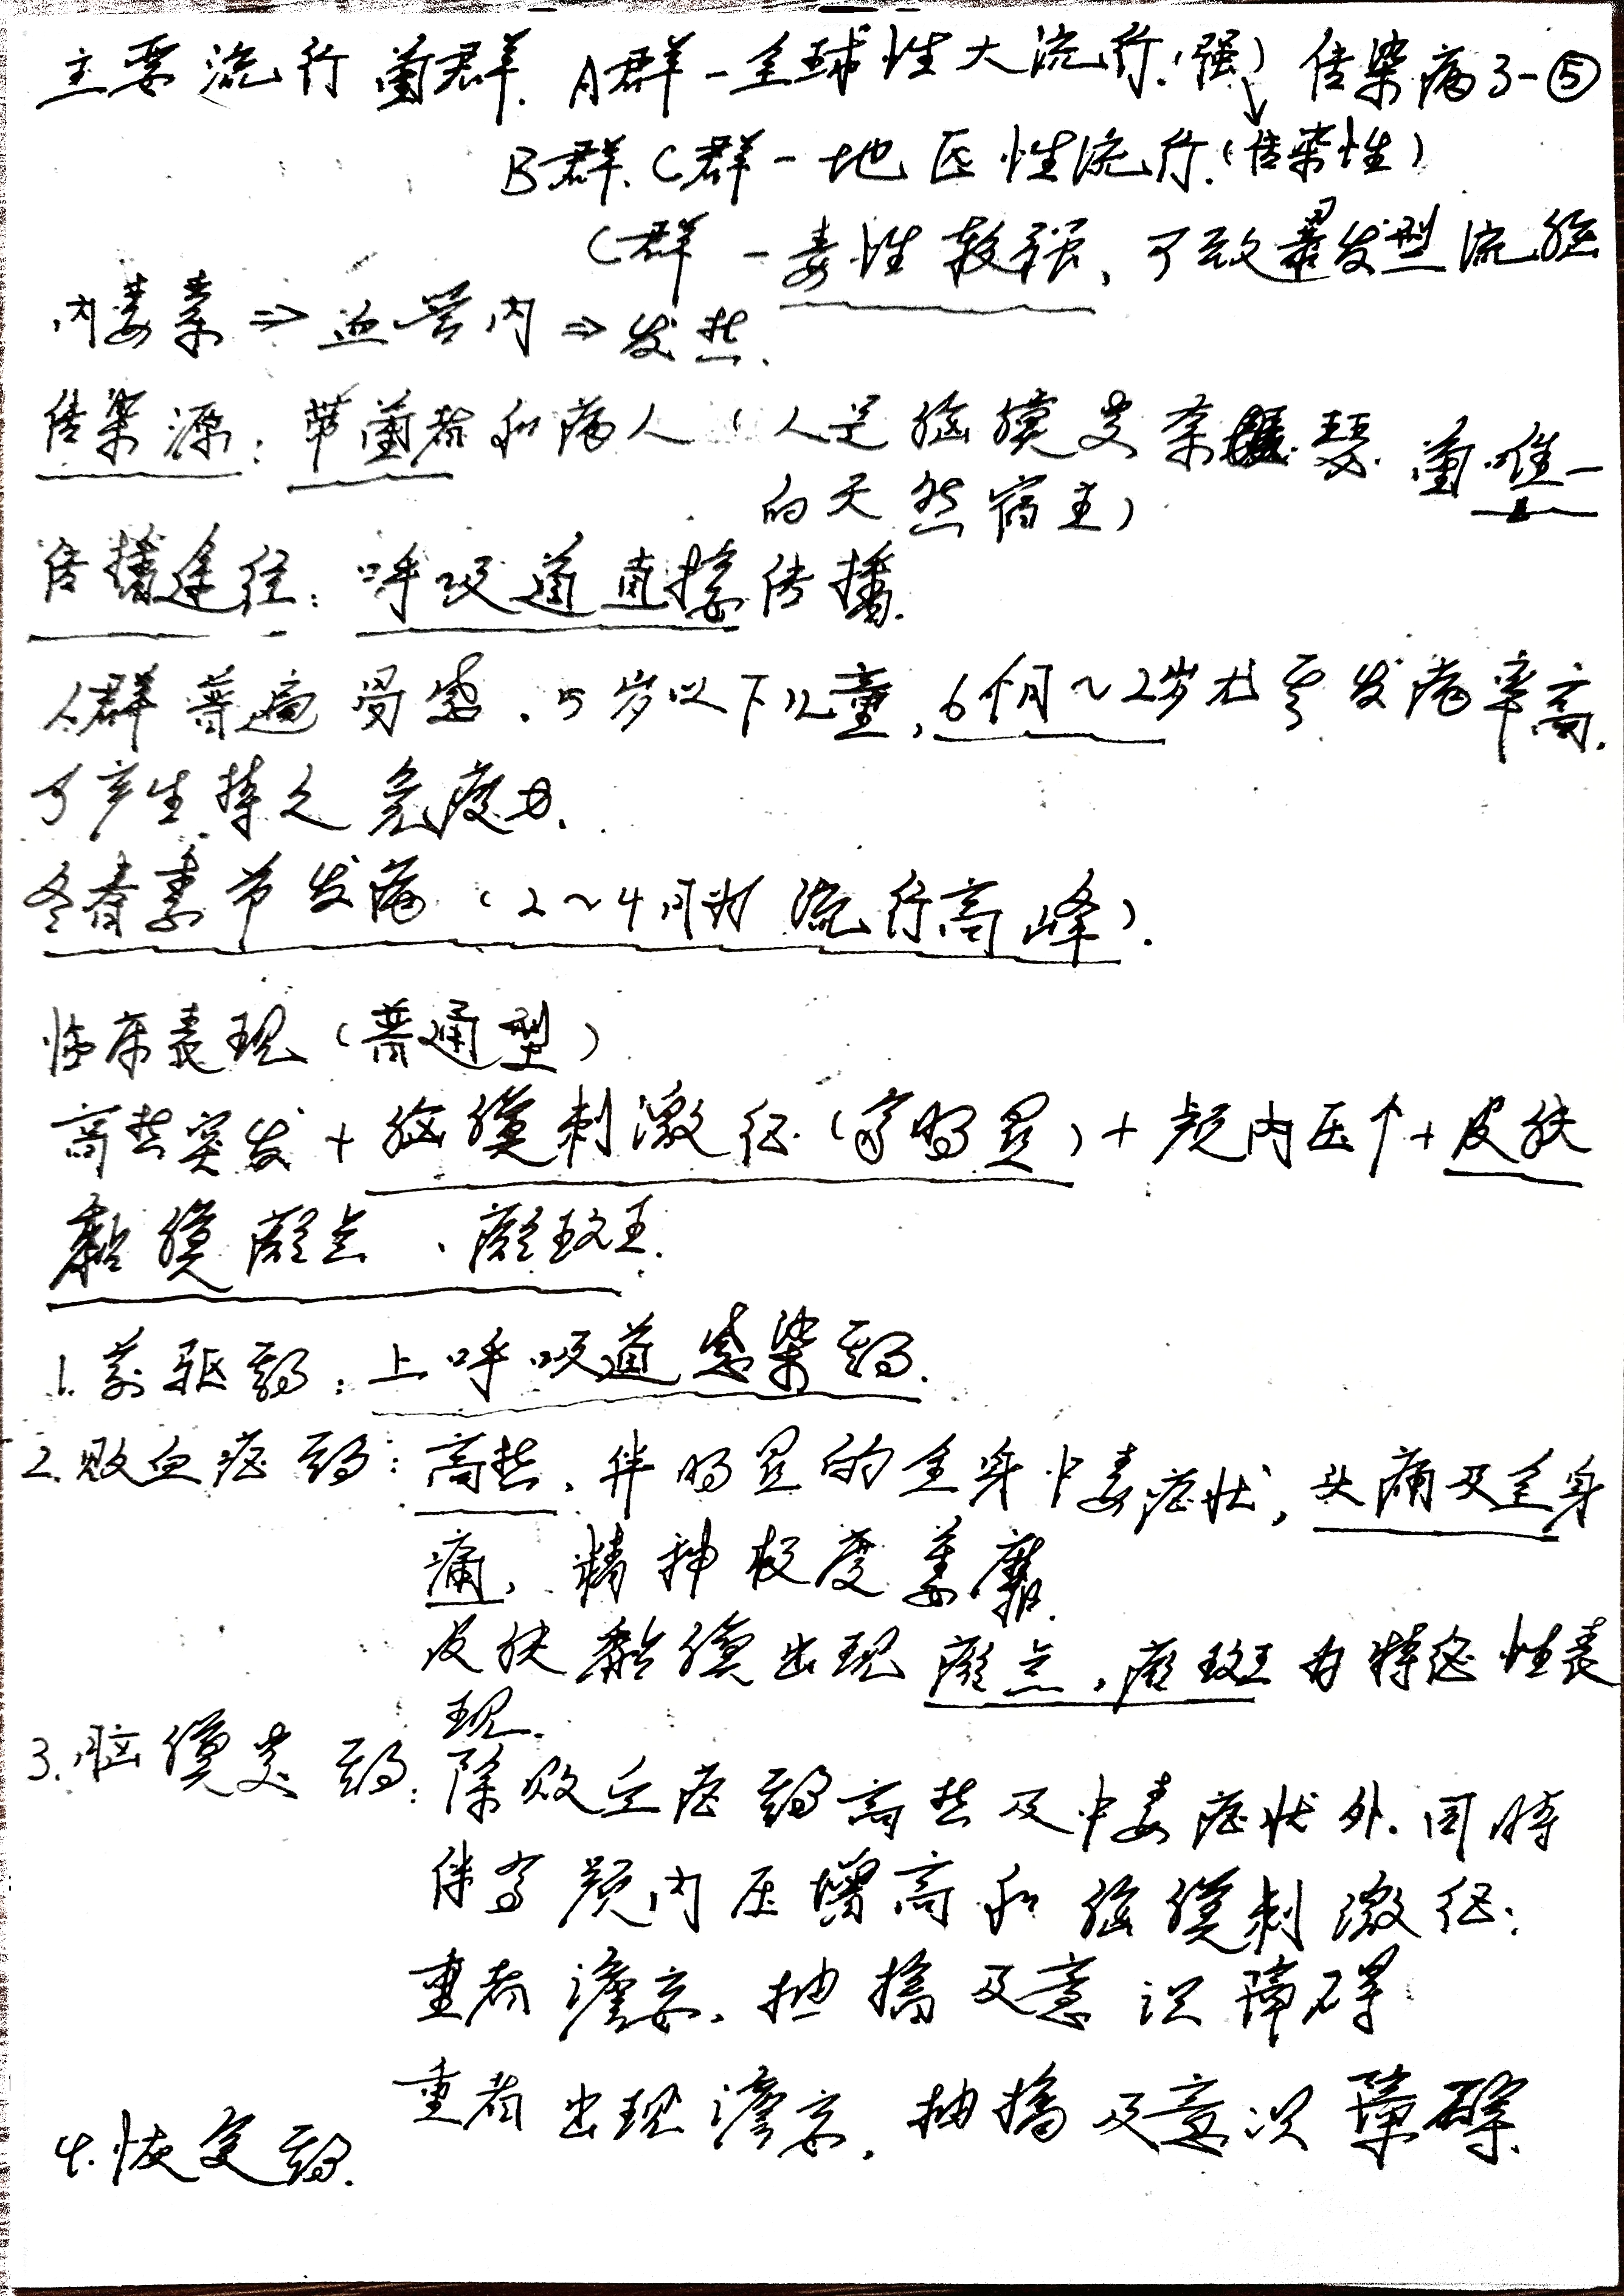 主要流行菌群. A群-全球性大流行.(强) 传染病3-⑤
B群.C群-地区性流行.(传染性)
C群-毒性较强、可致暴发型流脑
内毒素⇒血管内⇒发热.
传染源:带菌者和病人(人是脑膜炎奈瑟菌唯一
的天然宿主)
传播途径:呼吸道直接传播.
人群普遍易感.5岁以下儿童,6个月~2岁尤其发病率高.
可产生持久免疫力.
冬春季节发病(2~4月为流行高峰).
临床表现(普通型)
高热突发+脑膜刺激征(有明显)+颅内压↑+皮肤
黏膜瘀点、瘀斑.
1.前驱期:上呼吸道感染期.
2.败血症期:高热.伴明显的全身中毒症状,头痛及全身
痛,精神极度萎靡.
皮肤黏膜出现瘀点,瘀斑为特征性表
现.
3.脑膜炎期:除败血症期高热及中毒症状外.同时
伴有颅内压增高和脑膜刺激征;
重者谵妄.抽搐及意识障碍
重者出现谵妄.抽搐及意识障碍.
4.恢复期.